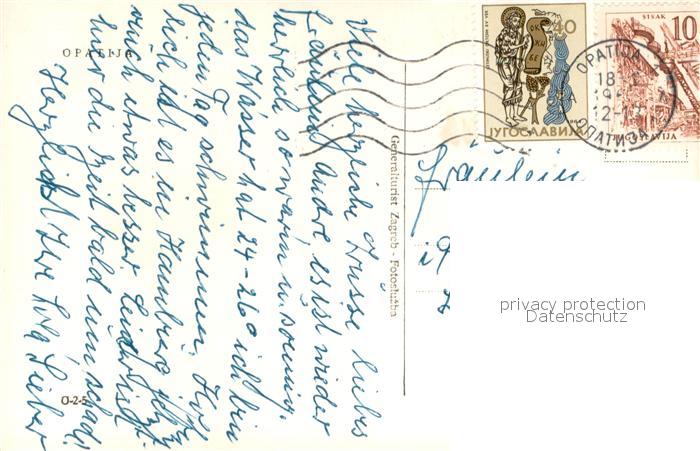 OPATIJA
Viele herzliche Grüsse liebes
Fräulein André es ist wieder
herrlich so warm u. sonnig.
das Wasser hat 24-26° ich bin
jeden Tag schwimmen. Hof
lich ist es in Hamburg jetzt
auch etwas besser. Leider ist
hier die Zeit bald um schade!
Herzlichst Ihre Lieber
O-2-5
Generalturist Zagreb - Fotoslužba
40
ЈУГОСЛАВИЈА
SISAK
10
JUGOSLAVIJA
OPATIJA
18
12-13
ОПАТИЈА
Fräulein
privacy protection
Datenschutz